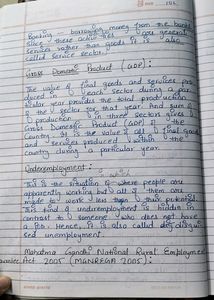 Banking, borrowing money from the bank
Since these activities are general
services rather than goods it is also
called service sector.
Gross Domestic Product (GDP):
The value of final goods and services pro
duced in each sector during a par
ticular year provides the total production
of the sector for that year. And sum of
production in three sectors gives
Gross Domestic Product (GDP) of the
Country. It is the value of all final goods
and services produced within the
country during a particular year.
Underemployment:
This is the situation where people are
apparently working but all of them are
made to work less than their potential.
This kind of underemployment is hidden in
contrast to someone who does not have
a job. Hence, it is also called
disguised unemployment
Mahatma Gandhi National Rural Employment
Act 2005 (MGNREGA 2005):